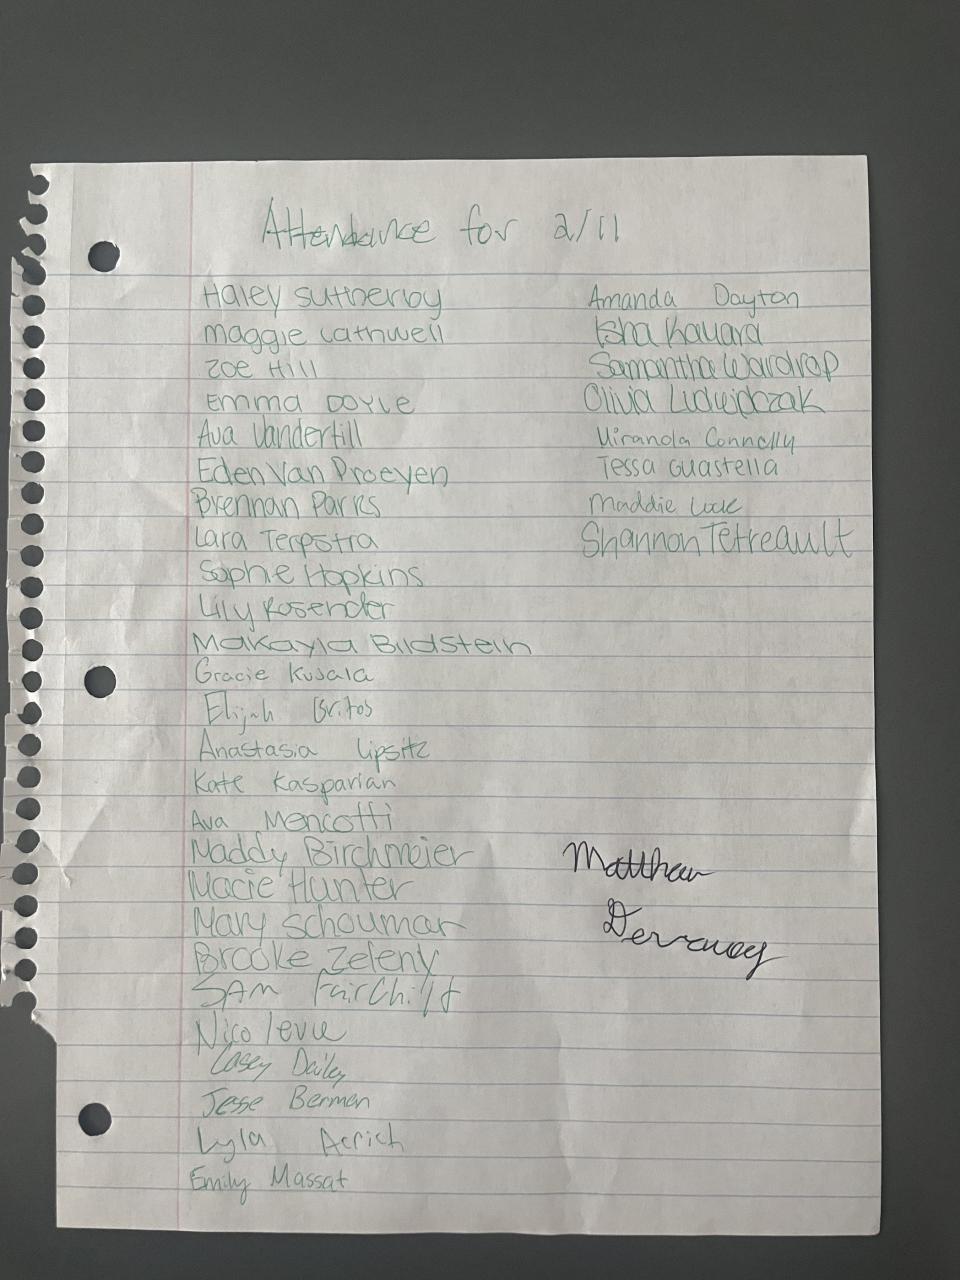 Attendance for 2/11
Haley Suttnerby
Maggie Cathwell
Zoe Hill
Emma Doyle
Ava Vandertill
Eden Van Proeyen
Brennan Parks
Lara Terpstra
Sophie Hopkins
Lily Rosender
Makayla Bildstein
Gracie Kusala
Elijah Britos
Anastasia Lipsitz
Kate Kasparian
Ava Mencotti
Maddy Birchmeier
Macie Hunter
Mary Schoumar
Brooke Zeleny
SAM FairChild
Nico
Casey Dailey
Jesse Berman
Lyla Acrich
Emily Massat
Amanda Dayton
Isha
Samantha Wardrop
Olivia
Miranda Connolly
Tessa Guastella
Maddie
Shannon Tetreault
Matthew